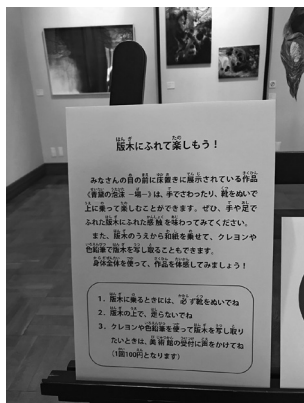 版木にふれて楽しもう！
みなさんの目の前に床置きに展示されている作品
は、手でさわったり、靴をぬいで
上に乗って楽しむことができます。ぜひ、手や足で
ふれた版木にふれた感触を味わってみてください。
また、版木のうえから和紙を乗せて、クレヨンや
色鉛筆で版木を写し取ることもできます。
身体全体を使って、作品を体感してみましょう！
1．版木に乗るときには、必ず靴をぬいでね
2．版木の上で、走らないでね
3．クレヨンや色鉛筆を使って版木を写し取り
たいときは、美術館の受付に声をかけてね
（1回100円となります）